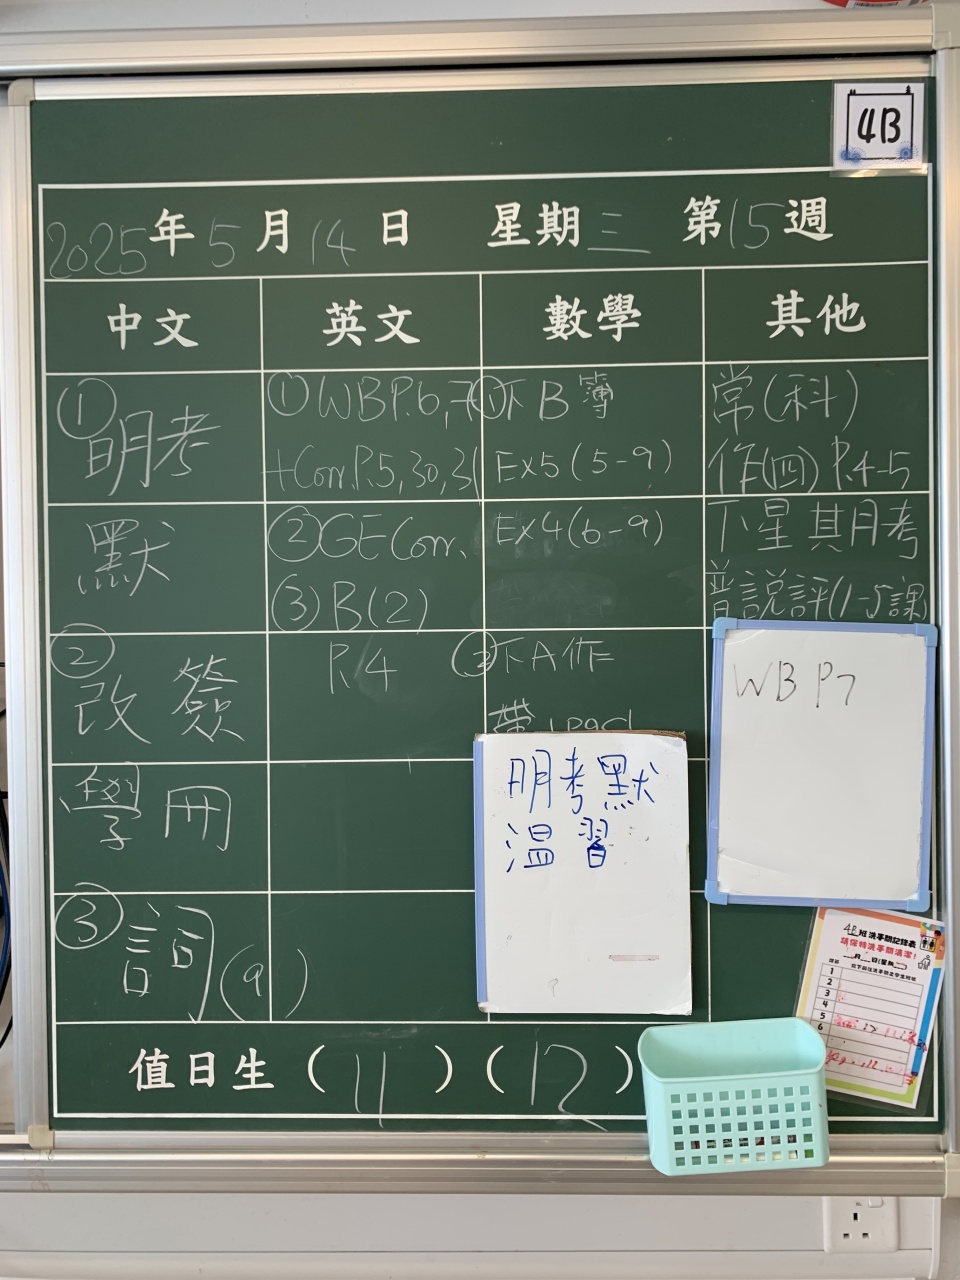 4B
2025年5月14日 星期三 第15週
中文 英文 數學 其他
①明考
默
②改簽
學冊
③詞(9)
①WBP.6,7
+Corr.P.5,30,31
②GE Corr.
③B(2)
P.4
①下B簿
Ex5(5-9)
Ex4(6-9)
②下A作
帶 ipad
常(科)
作(四) P.4-5
下星其月考
普說評(1-5課)
WB P7
明考默
溫習
4B班洗手間記錄表
請保持洗手間清潔!
月 日(星期 )
1
2
3
4
5
6
值日生(11)(12)